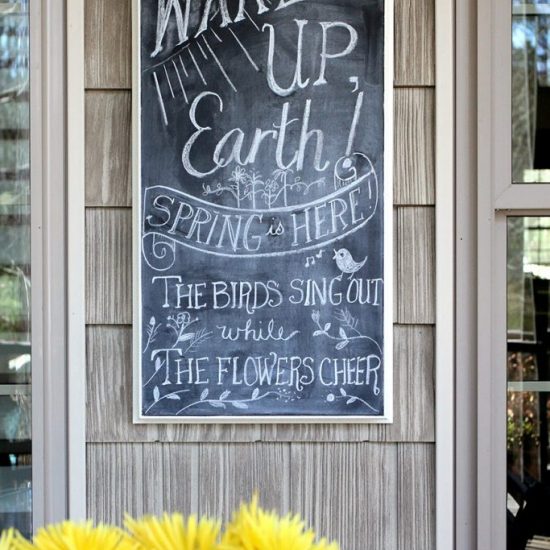 WAKE
UP,
Earth!
SPRING is HERE!
THE BIRDS SING OUT
while
THE FLOWERS CHEER